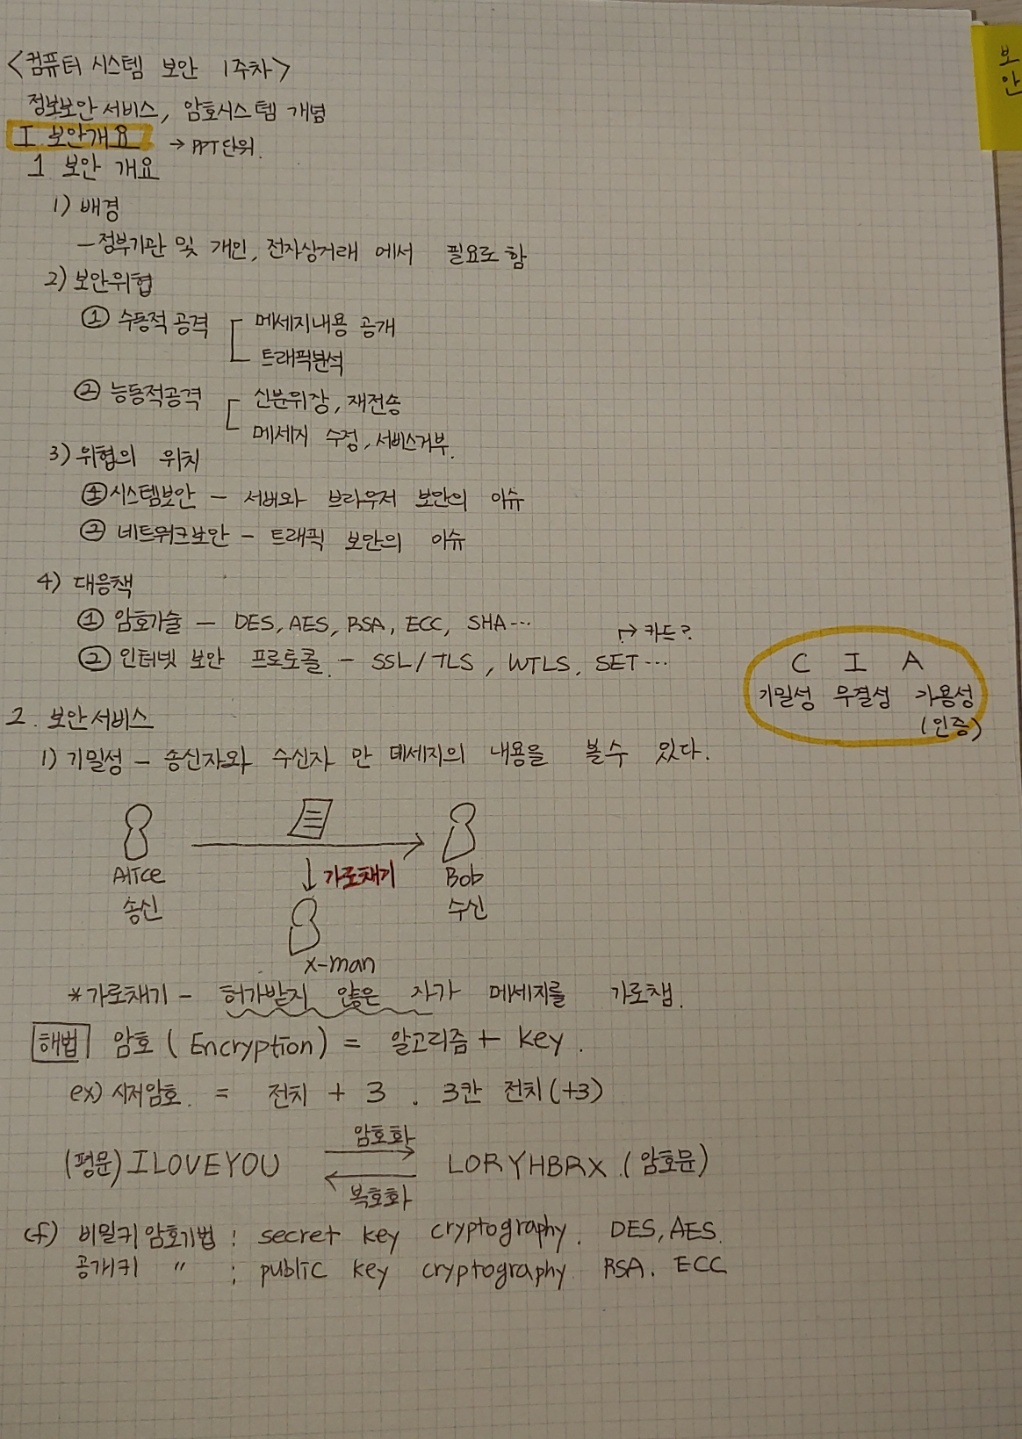 보안
<컴퓨터 시스템 보안 1주차>
정보보안 서비스, 암호시스템 개념
I 보안개요 → PPT단위.
1 보안 개요
1) 배경
- 정부기관 및 개인, 전자상거래 에서 필요로 함
2) 보안위협
① 수동적 공격 메세지내용 공개
트래픽분석
② 능동적공격 신분위장, 재전송
메세지 수정, 서비스거부.
3) 위협의 위치
① 시스템보안 - 서버와 브라우저 보안의 이슈
② 네트워크보안 - 트래픽 보안의 이슈
4) 대응책
① 암호기술 - DES, AES, RSA, ECC, SHA…
↱ 카드?
② 인터넷 보안 프로토콜. - SSL/TLS, WTLS. SET…
C I A
기밀성 무결성 가용성
(인증)
2. 보안서비스
1) 기밀성 - 송신자와 수신자 만 메세지의 내용을 볼수 있다.
Alice ↓ 가로채기 Bob
송신 수신
x-man
*가로채기 - 허가받지 않은 자가 메세지를 가로챔.
해법 암호 (Encryption) = 알고리즘 + key.
ex) 시저암호. = 전치 + 3. 3칸 전치(+3)
암호화
(평문) ILOVEYOU LORYHBRX. (암호문)
복호화
cf) 비밀키 암호기법 : secret key cryptography. DES, AES.
공개키 〃 : public key cryptography RSA. ECC